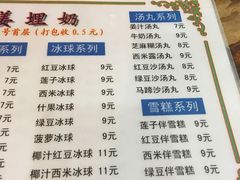 姜埋奶
号首层（打包收0.5元）
系列
元
元
元
元
元
元
元
冰球系列
红豆冰球 9元
莲子冰球 9元
西米冰球 9元
什果冰球 9元
绿豆冰球 9元
菠萝冰球 9元
椰汁红豆冰球 11元
椰汁西米冰球 11元
汤丸系列
姜汁汤丸 7元
牛奶汤丸 9元
芝麻糊汤丸 9元
西米露汤丸 9元
红豆沙汤丸 9元
绿豆沙汤丸 9元
马蹄沙汤丸 9元
雪糕系列
莲子伴雪糕 9元
西米伴雪糕 9元
红豆伴雪糕 9元
绿豆伴雪糕 9元